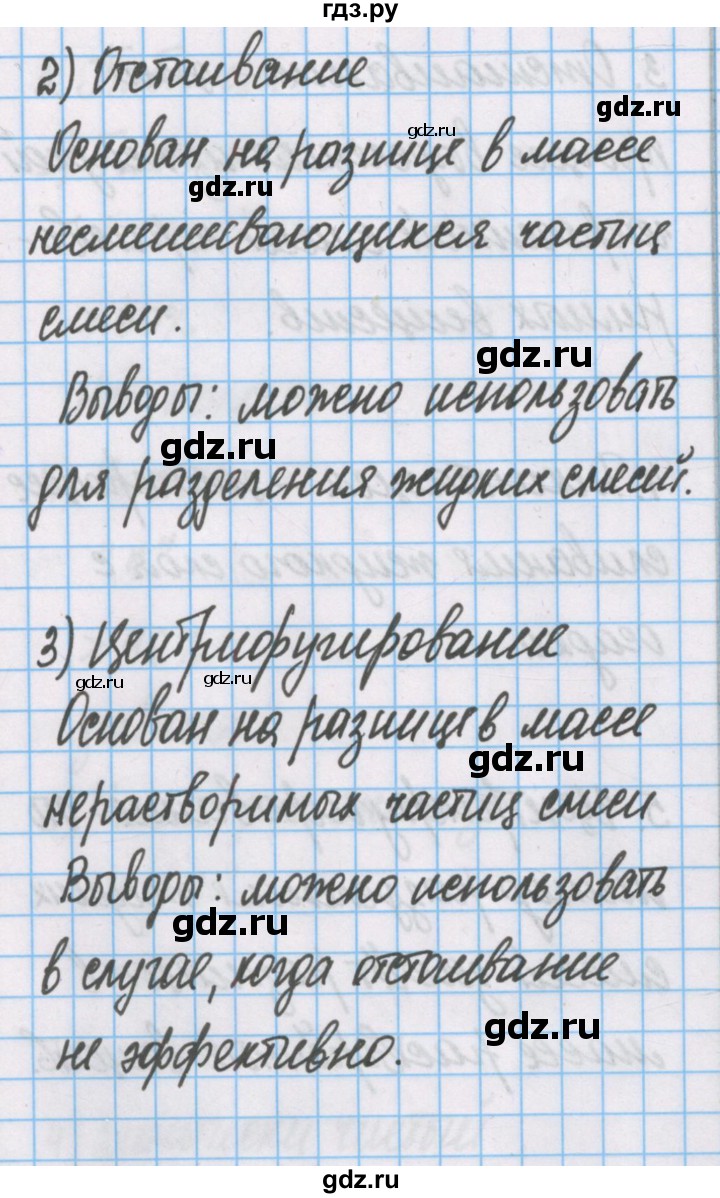 гдз.ру
2) Отстаивание
gdz.ru
gdz.ru
Основан на разнице в массе
gdz.ru
несмешивающихся частиц
смеси.
gdz.ru
Выводы: можно использовать
gdz.ru
для разделения жидких смесей.
3) Центрифугирование
gdz.ru gdz.ru
Основан на разнице в массе
gdz.ru
нерастворимых частиц смеси
Выводы: можно использовать
gdz.ru
в случае, когда отстаивание
gdz.ru
не эффективно.
gdz.ru